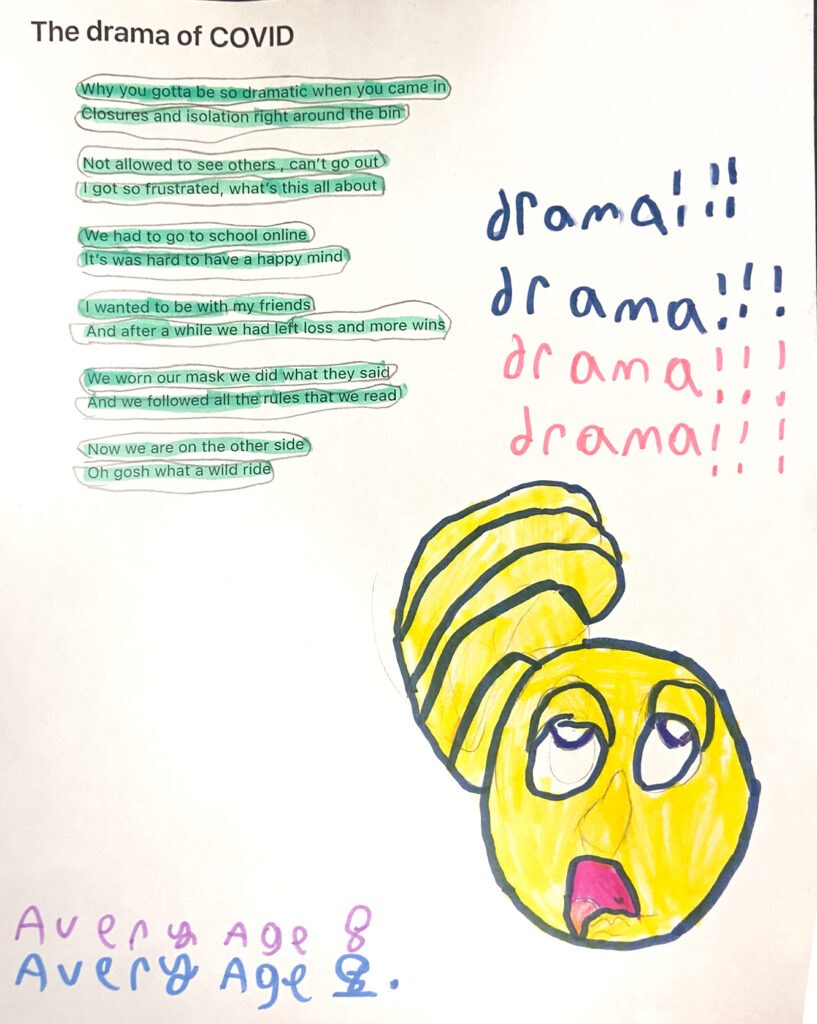 The drama of COVID
Why you gotta be so dramatic when you came in
Closures and isolation right around the bin
Not allowed to see others , can't go out
I got so frustrated, what's this all about
We had to go to school online
It's was hard to have a happy mind
I wanted to be with my friends
And after a while we had left loss and more wins
We worn our mask we did what they said
And we followed all the rules that we read
Now we are on the other side
Oh gosh what a wild ride
drama!!!
drama!!!
drama!!!
drama!!!
Avery Age 8
Avery Age 8.